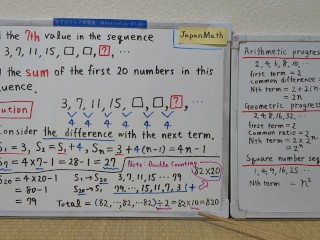 the 7th value in the sequence
3, 7, 11, 15, □, □, □, ⋯
the sum of the first 20 numbers in this
uence.
ution
3, 7, 11, 15, □, □, ?, ⋯
4 4 4 4 4 4
Consider the difference with the next term.
S₁ = 3, S₂ = S₁ + 4, Sₙ = 3 + 4(n-1) = 4n-1
= 4×7-1 = 28-1 = 27
Note: Double Counting
82×20
S₂₀ = 4×20-1
= 80-1
= 79
S₁→S₂₀ 3, 7, 11, 15 ⋯ 79
S₂₀→S₁ 79, ⋯, 15, 11, 7, 3 (+
Total = (82, ⋯, 82, ⋯ 82) ÷ 2 = 82×10 = 820
JapanMath
Arithmetic progre
2, 4, 6, 8, 10, ⋯
first term = 2
Common difference =
Nth term = 2+2(n
= 2n
Geometric progre
2, 4, 8, 16, 32, ⋯
first term = 2
Common ratio = 2
Nth term = 2×2
= 2ⁿ
Square number seq
1, 4, 9, 16, 25 ⋯
Nth term = n²